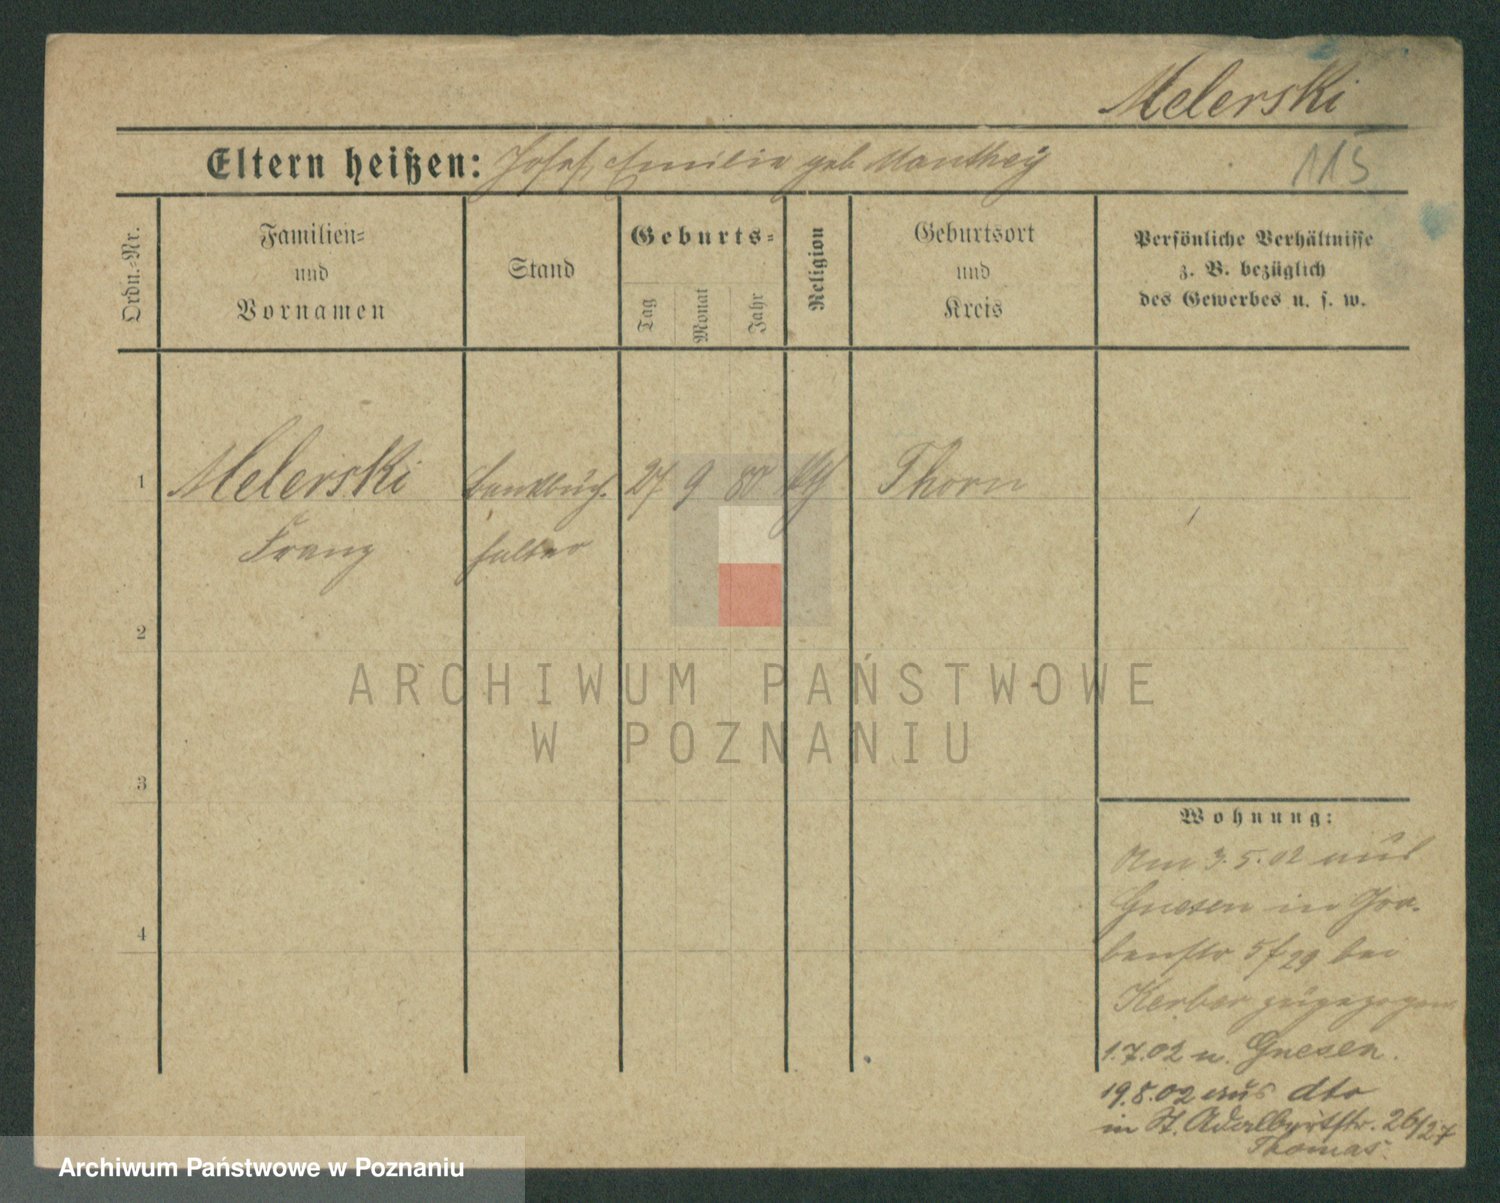 Melerski
Eltern heißen: Josef, Emilie geb. Manthey
115
Ordn.-Nr.
Familien-
und
Vornamen
Stand
Geburts-
Tag
Monat
Jahr
Religion
Geburtsort
und
Kreis
Persönliche Verhältnisse
z. B. bezüglich
des Gewerbes u. s. w.
1 Melerski Bankbuch- 27 9 80 Thorn
Franz halter
2
ARCHIWUM PAŃSTWOWE
W POZNANIU
3
Wohnung:
Am 3.5.02 aus
Gnesen in Gra-
benstr 5 bei
Kerber zugezogen
4
1.7.02 n. Gnesen.
19.8.02 aus dto
in St. Adalbertstr. 26/27
Thomas.
Archiwum Państwowe w Poznaniu